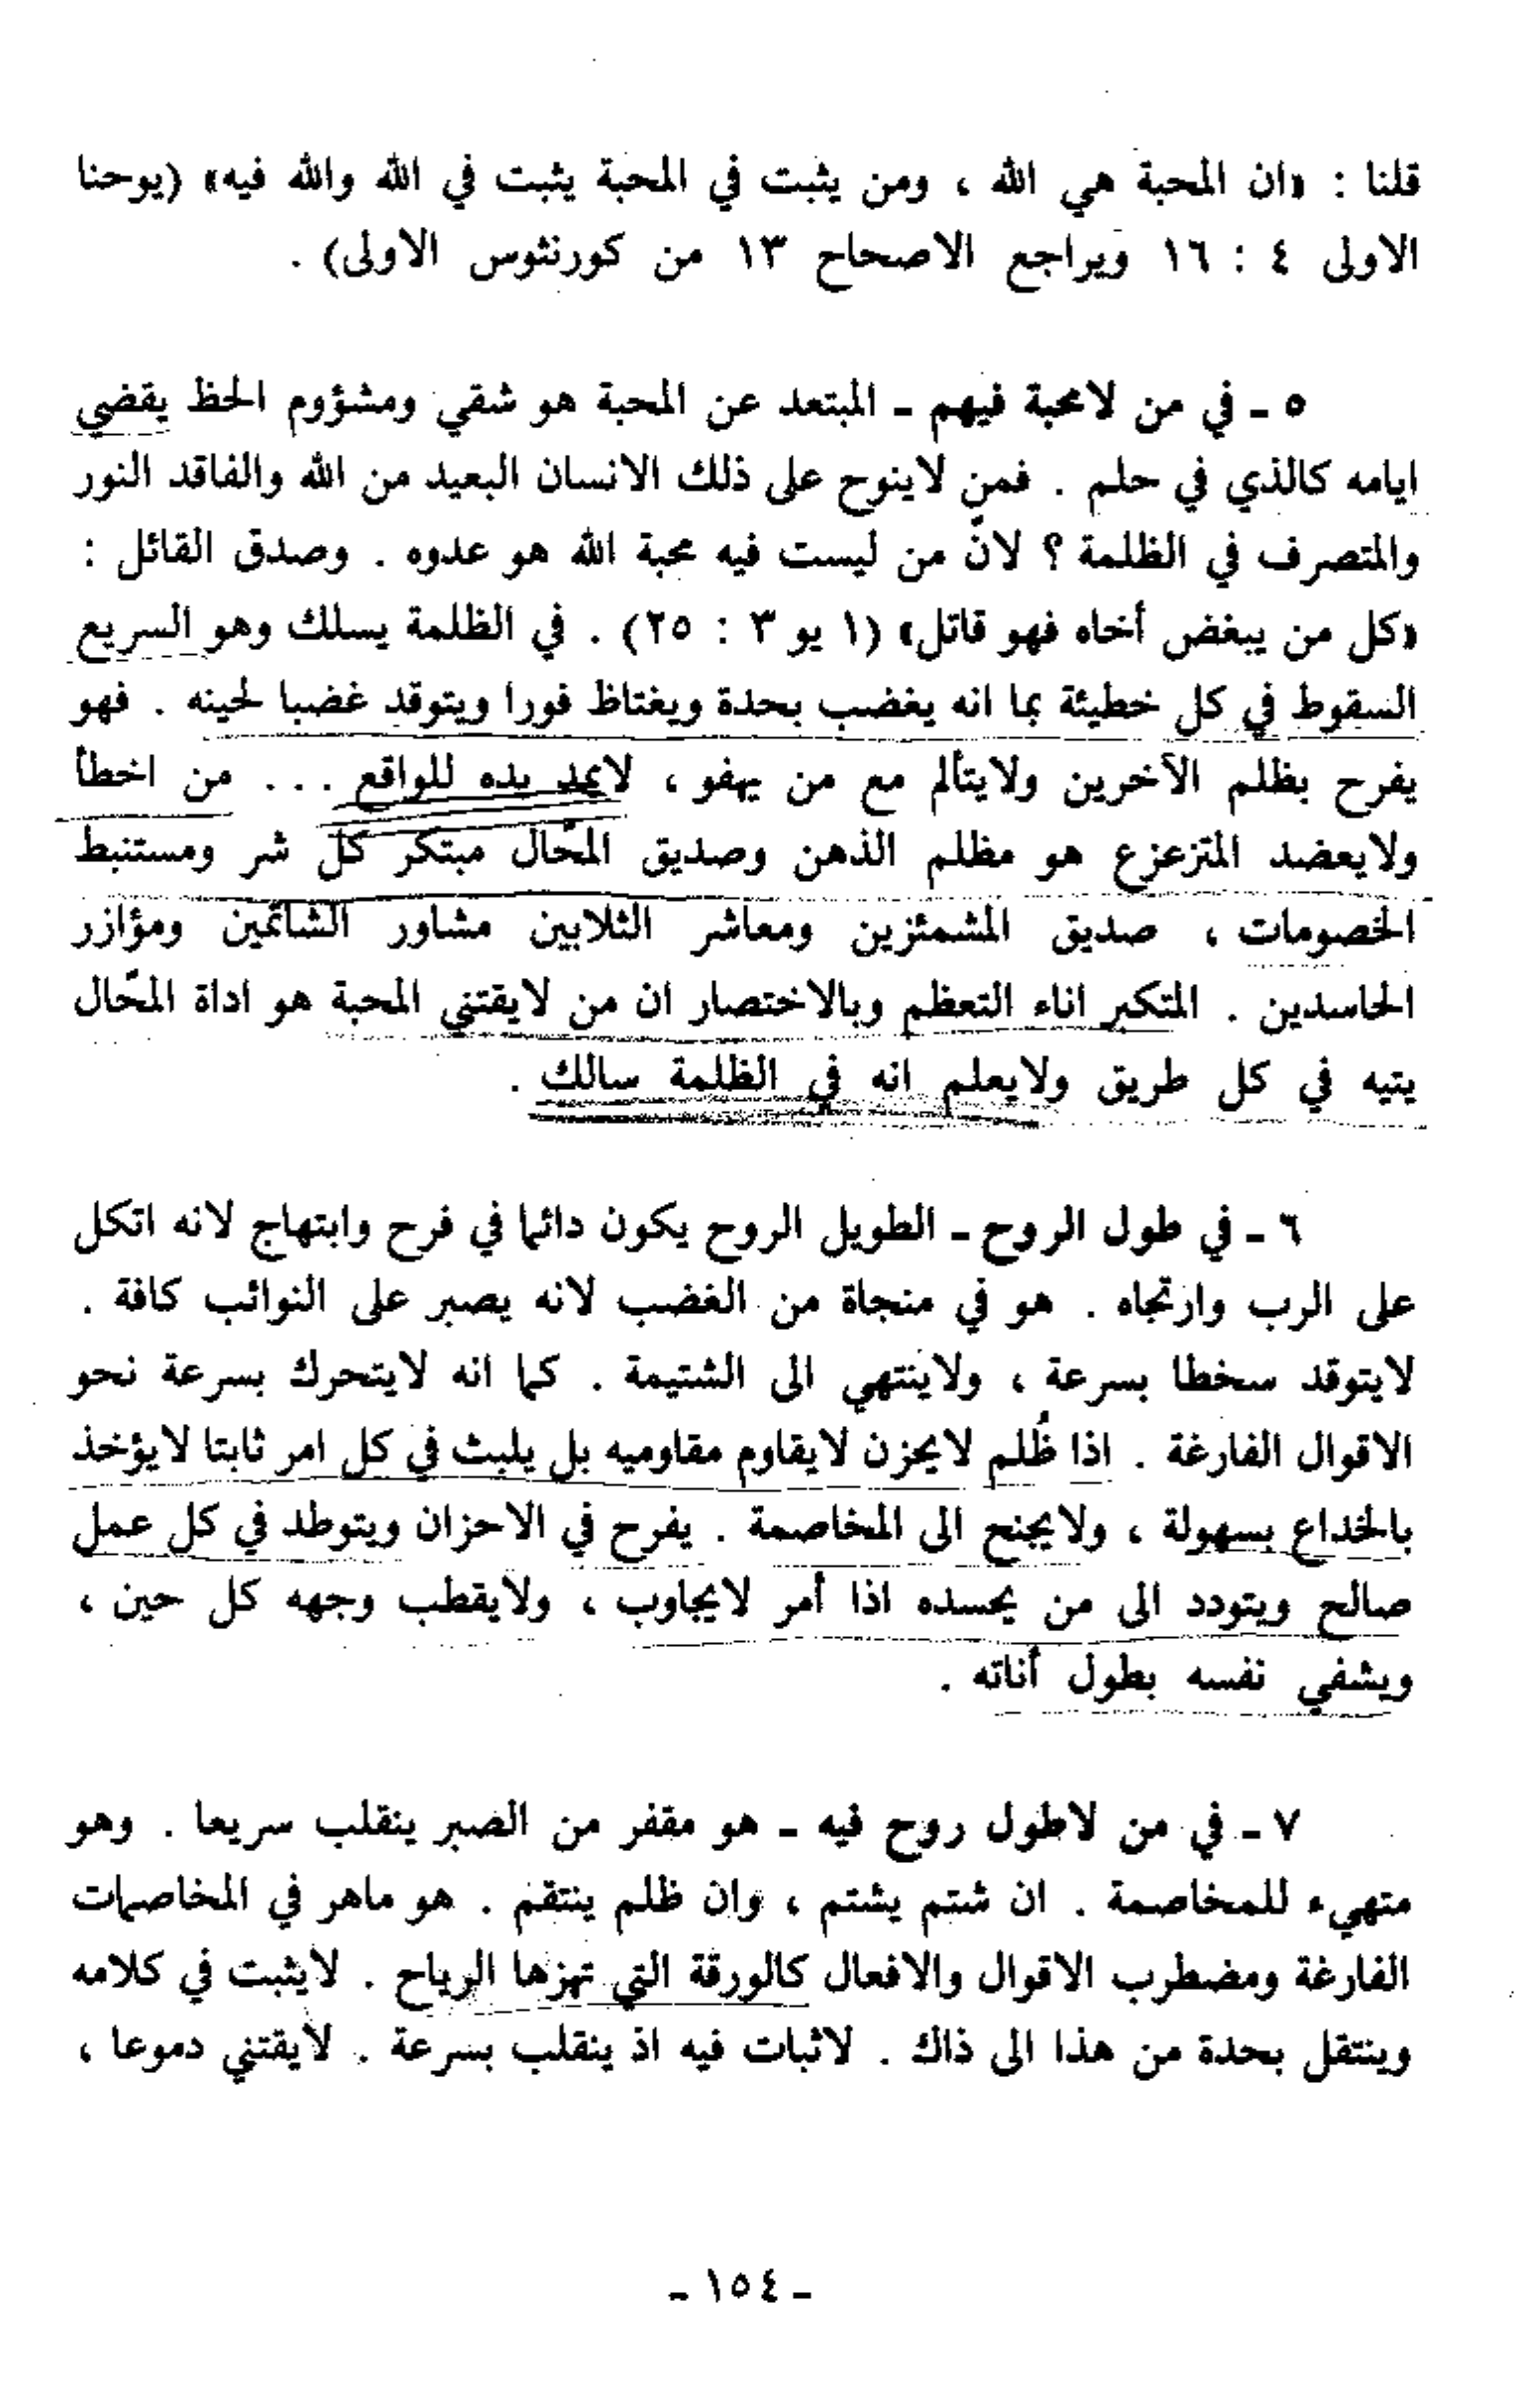 قلنا : «ان المحبة هي الله ، ومن يثبت في المحبة يثبت في الله والله فيه» (يوحنا
الاولى ٤ : ١٦ ويراجع الاصحاح ١٣ من كورنثوس الاولى) .
٥ ـ في من لامحبة فيهم ـ المبتعد عن المحبة هو شقي ومشؤوم الحظ يقضي
ايامه كالذي في حلم . فمن لاينوح على ذلك الانسان البعيد من الله والفاقد النور
والمتصرف في الظلمة ؟ لانّ من ليست فيه محبة الله هو عدوه . وصدق القائل :
«كل من يبغض أخاه فهو قاتل» (١ يو ٣ : ٢٥) . في الظلمة يسلك وهو السريع
السقوط في كل خطيئة بما انه يغضب بحدة ويغتاظ فورا ويتوقد غضبا لحينه . فهو
يفرح بظلم الآخرين ولايتألم مع من يهفو ، لايمد يده للواقع ... من اخطأ
ولايعضد المتزعزع هو مظلم الذهن وصديق المحّال مبتكر كل شر ومستنبط
الخصومات ، صديق المشمئزين ومعاشر الثلابين مشاور الشاتمين ومؤازر
الحاسدين . المتكبر اناء التعظم وبالاختصار ان من لايقتني المحبة هو اداة المحّال
يتيه في كل طريق ولايعلم انه في الظلمة سالك .
٦ ـ في طول الروح ـ الطويل الروح يكون دائما في فرح وابتهاج لانه اتكل
على الرب وارتجاه . هو في منجاة من الغضب لانه يصبر على النوائب كافة .
لايتوقد سخطا بسرعة ، ولاينتهي الى الشتيمة . كما انه لايتحرك بسرعة نحو
الاقوال الفارغة . اذا ظُلم لايحزن لايقاوم مقاوميه بل يلبث في كل امر ثابتا لايؤخذ
بالخداع بسهولة ، ولايجنح الى المخاصمة . يفرح في الاحزان ويتوطد في كل عمل
صالح ويتودد الى من يحسده اذا أمر لايجاوب ، ولايقطب وجهه كل حين ،
ويشفي نفسه بطول أناته .
٧ ـ في من لاطول روح فيه ـ هو مقفر من الصبر ينقلب سريعا . وهو
متهيء للمخاصمة . ان شتم يشتم ، وان ظلم ينتقم . هو ماهر في المخاصمات
الفارغة ومضطرب الاقوال والافعال كالورقة التي تهزها الرياح . لايثبت في كلامه
وينتقل بحدة من هذا الى ذاك . لاثبات فيه اذ ينقلب بسرعة . لايقتني دموعا ،
ـ ١٥٤ ـ